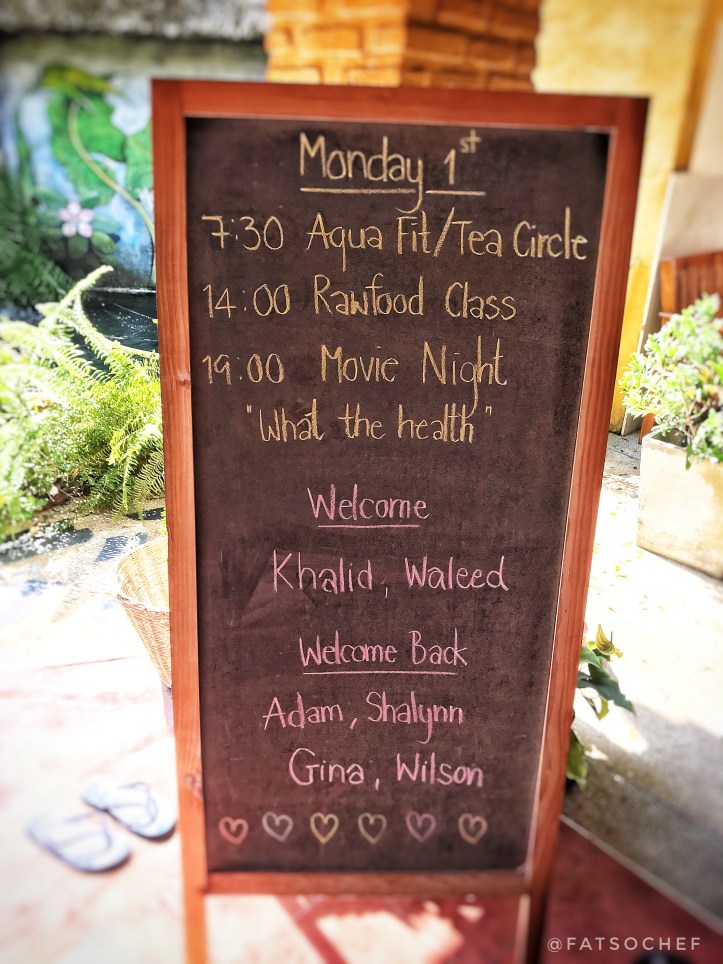 Monday 1st
7:30 Aqua Fit/Tea Circle
14:00 Rawfood Class
19:00 Movie Night
"What the health"
Welcome
Khalid, Waleed
Welcome Back
Adam, Shalynn
Gina, Wilson
@FATSOCHEF